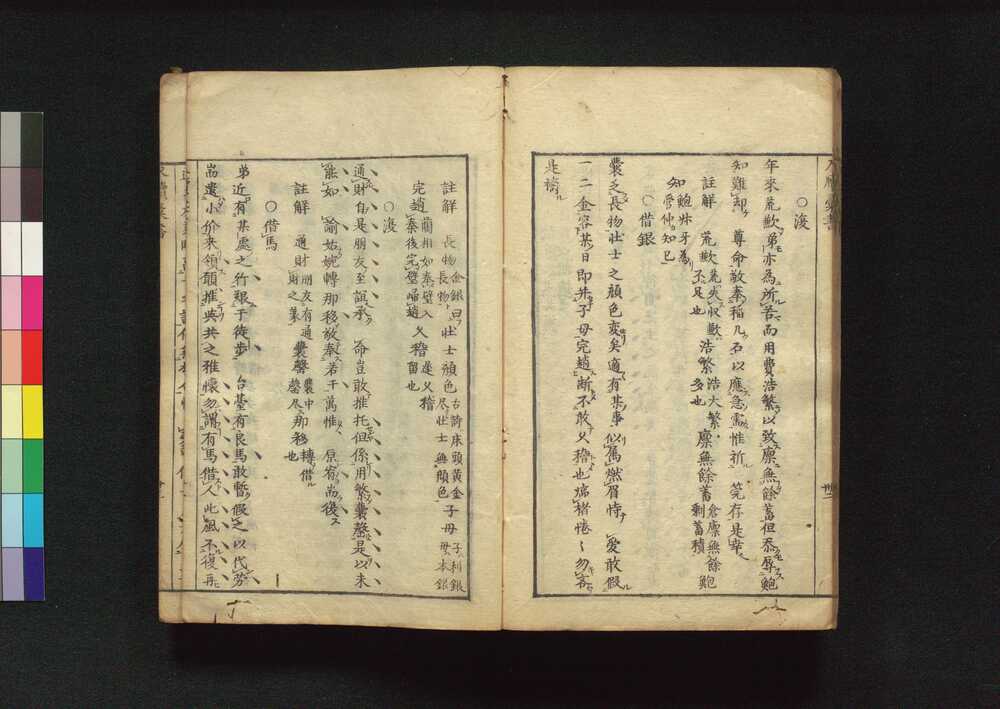 ○復
年來荒歉弟亦為所苦而用費浩繁以致廩無餘蓄但忝辱鮑
知難却 尊命敢奉稲几石以應急需惟祈 筦存是幸
註解 荒歉 荒失収歉不足也 浩繁 浩大繁多也 廩無餘蓄 倉廩無餘剩蓄積 鮑
知 鮑叔牙為管仲知己
○借銀
囊乏長物壮士之顔色変矣適有某事似属燃眉恃 愛敢假
一二金容某日即并子母完趙断不敢久稽也 楮惓〻勿吝
是禱
註解 長物 金銀曰長物 壮士顔色 古詩床頭黄金尽壮士無顔色 子母 子利銀母本銀
完趙 藺相如奉璧入秦後完璧帰趙 久稽 遅久稽留也
○復
通財自是朋友至誼承 命豈敢推托但係用繁囊罄是以未
能如 諭姑婉轉那移敢奉若干萬惟 原宥尚後
註解 通財 朋友有通財之義 囊罄 囊中罄尽 那移 轉借也
○借馬
弟近有某處之行艱于徒歩 台臺有良馬敢暫假之以代労
尚遣小价来領頴推与共之雅懐勿謂有馬借人此風不復再